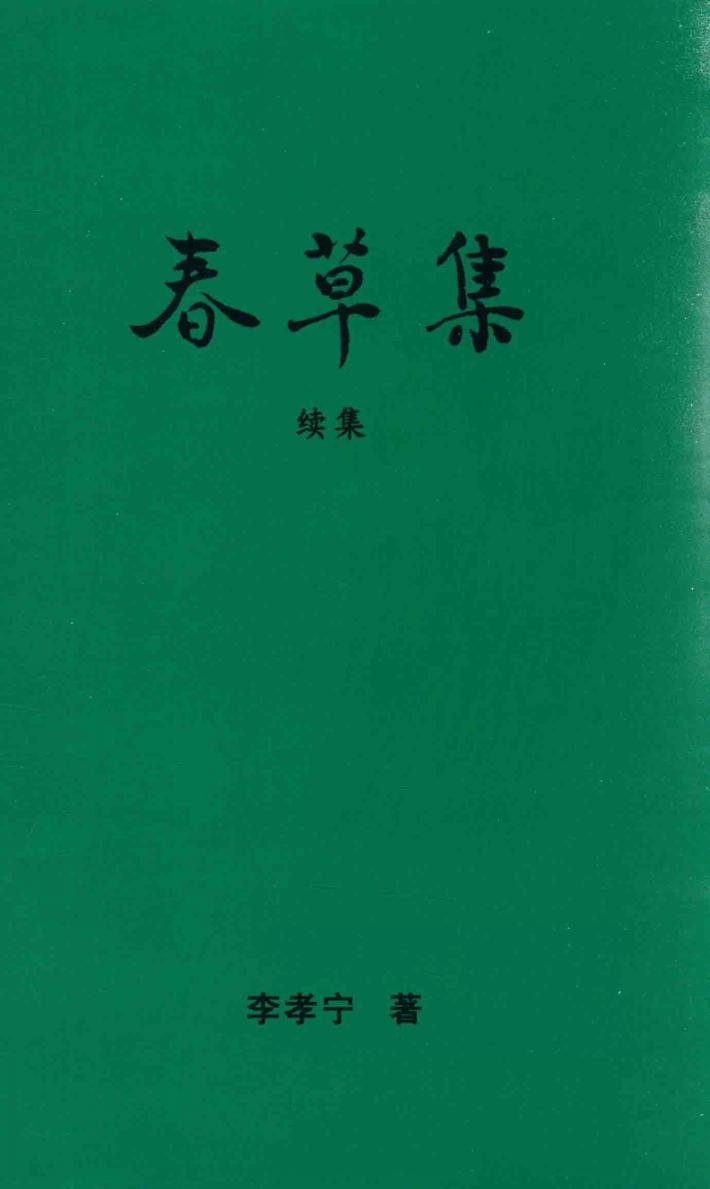 春草集
续集
李孝宁 著